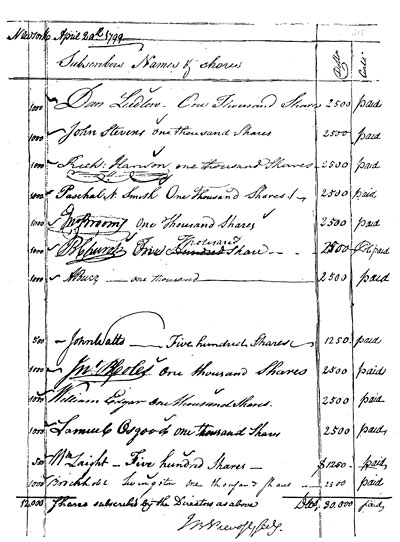 New York April 22d 1799
Subscribers Names of shares Dolls Cents
1000 Dan Ludlow - One Thousand Shares 2500 paid
1000 John Stevens one thousand Shares 2500 paid
1000 one thousand Shares 2500 paid
1000 Paschal N. Smith One Thousand Shares 2500 paid
1000 Jno Broome One Thousand Shares 2500 paid
1000 J B Church One Thousand Share 2500 paid
1000 A Burr one thousand 2500 paid
500 John Watts Five hundred Shares 1250 paid
1000 one thousand Shares 2500 paid
1000 William Edgar one thousand Shares. 2500 paid
1000 Samuel Osgood one thousand Shares 2500 paid
500 Wm Laight - Five hundred Shares - $1250 paid
1000 Brockholst Livingston one thousand Shares 2500 paid
12,000 Shares subscribed by the Directors as above Dlls. 30.000 paid